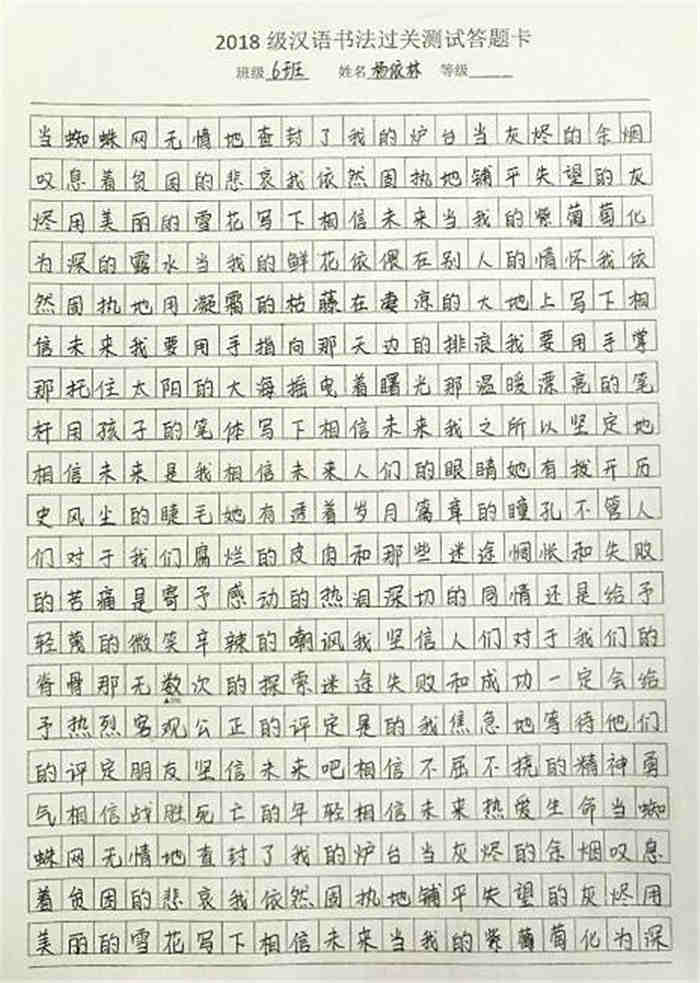 2018级汉语书法过关测试答题卡
班级 6班 姓名 杨依林 等级
当蜘蛛网无情地查封了我的炉台当灰烬的余烟
叹息着贫困的悲哀我依然固执地铺平失望的灰
烬用美丽的雪花写下相信未来当我的紫葡萄化
为深的露水当我的鲜花依偎在别人的情怀我依
然固执地用凝霜的枯藤在凄凉的大地上写下相
信未来我要用手指向那天边的排浪我要用手掌
那托住太阳的大海摇曳着曙光那温暖漂亮的笔
杆用孩子的笔体写下相信未来我之所以坚定地
相信未来是我相信未来人们的眼睛她有拨开历
史风尘的睫毛她有透着岁月篇章的瞳孔不管人
们对于我们腐烂的皮肉和那些迷途惆怅和失败
的苦痛是寄予感动的热泪深切的同情还是给予
轻蔑的微笑辛辣的嘲讽我坚信人们对于我们的
脊骨那无数次的探索迷途失败和成功一定会给
予热烈客观公正的评定是的我焦急地等待他们
的评定朋友坚信未来吧相信不屈不挠的精神勇
气相信战胜死亡的年轻相信未来热爱生命当蜘
蛛网无情地查封了我的炉台当灰烬的余烟叹息
着贫困的悲哀我依然固执地铺平失望的灰烬用
美丽的雪花写下相信未来当我的紫葡萄化为深